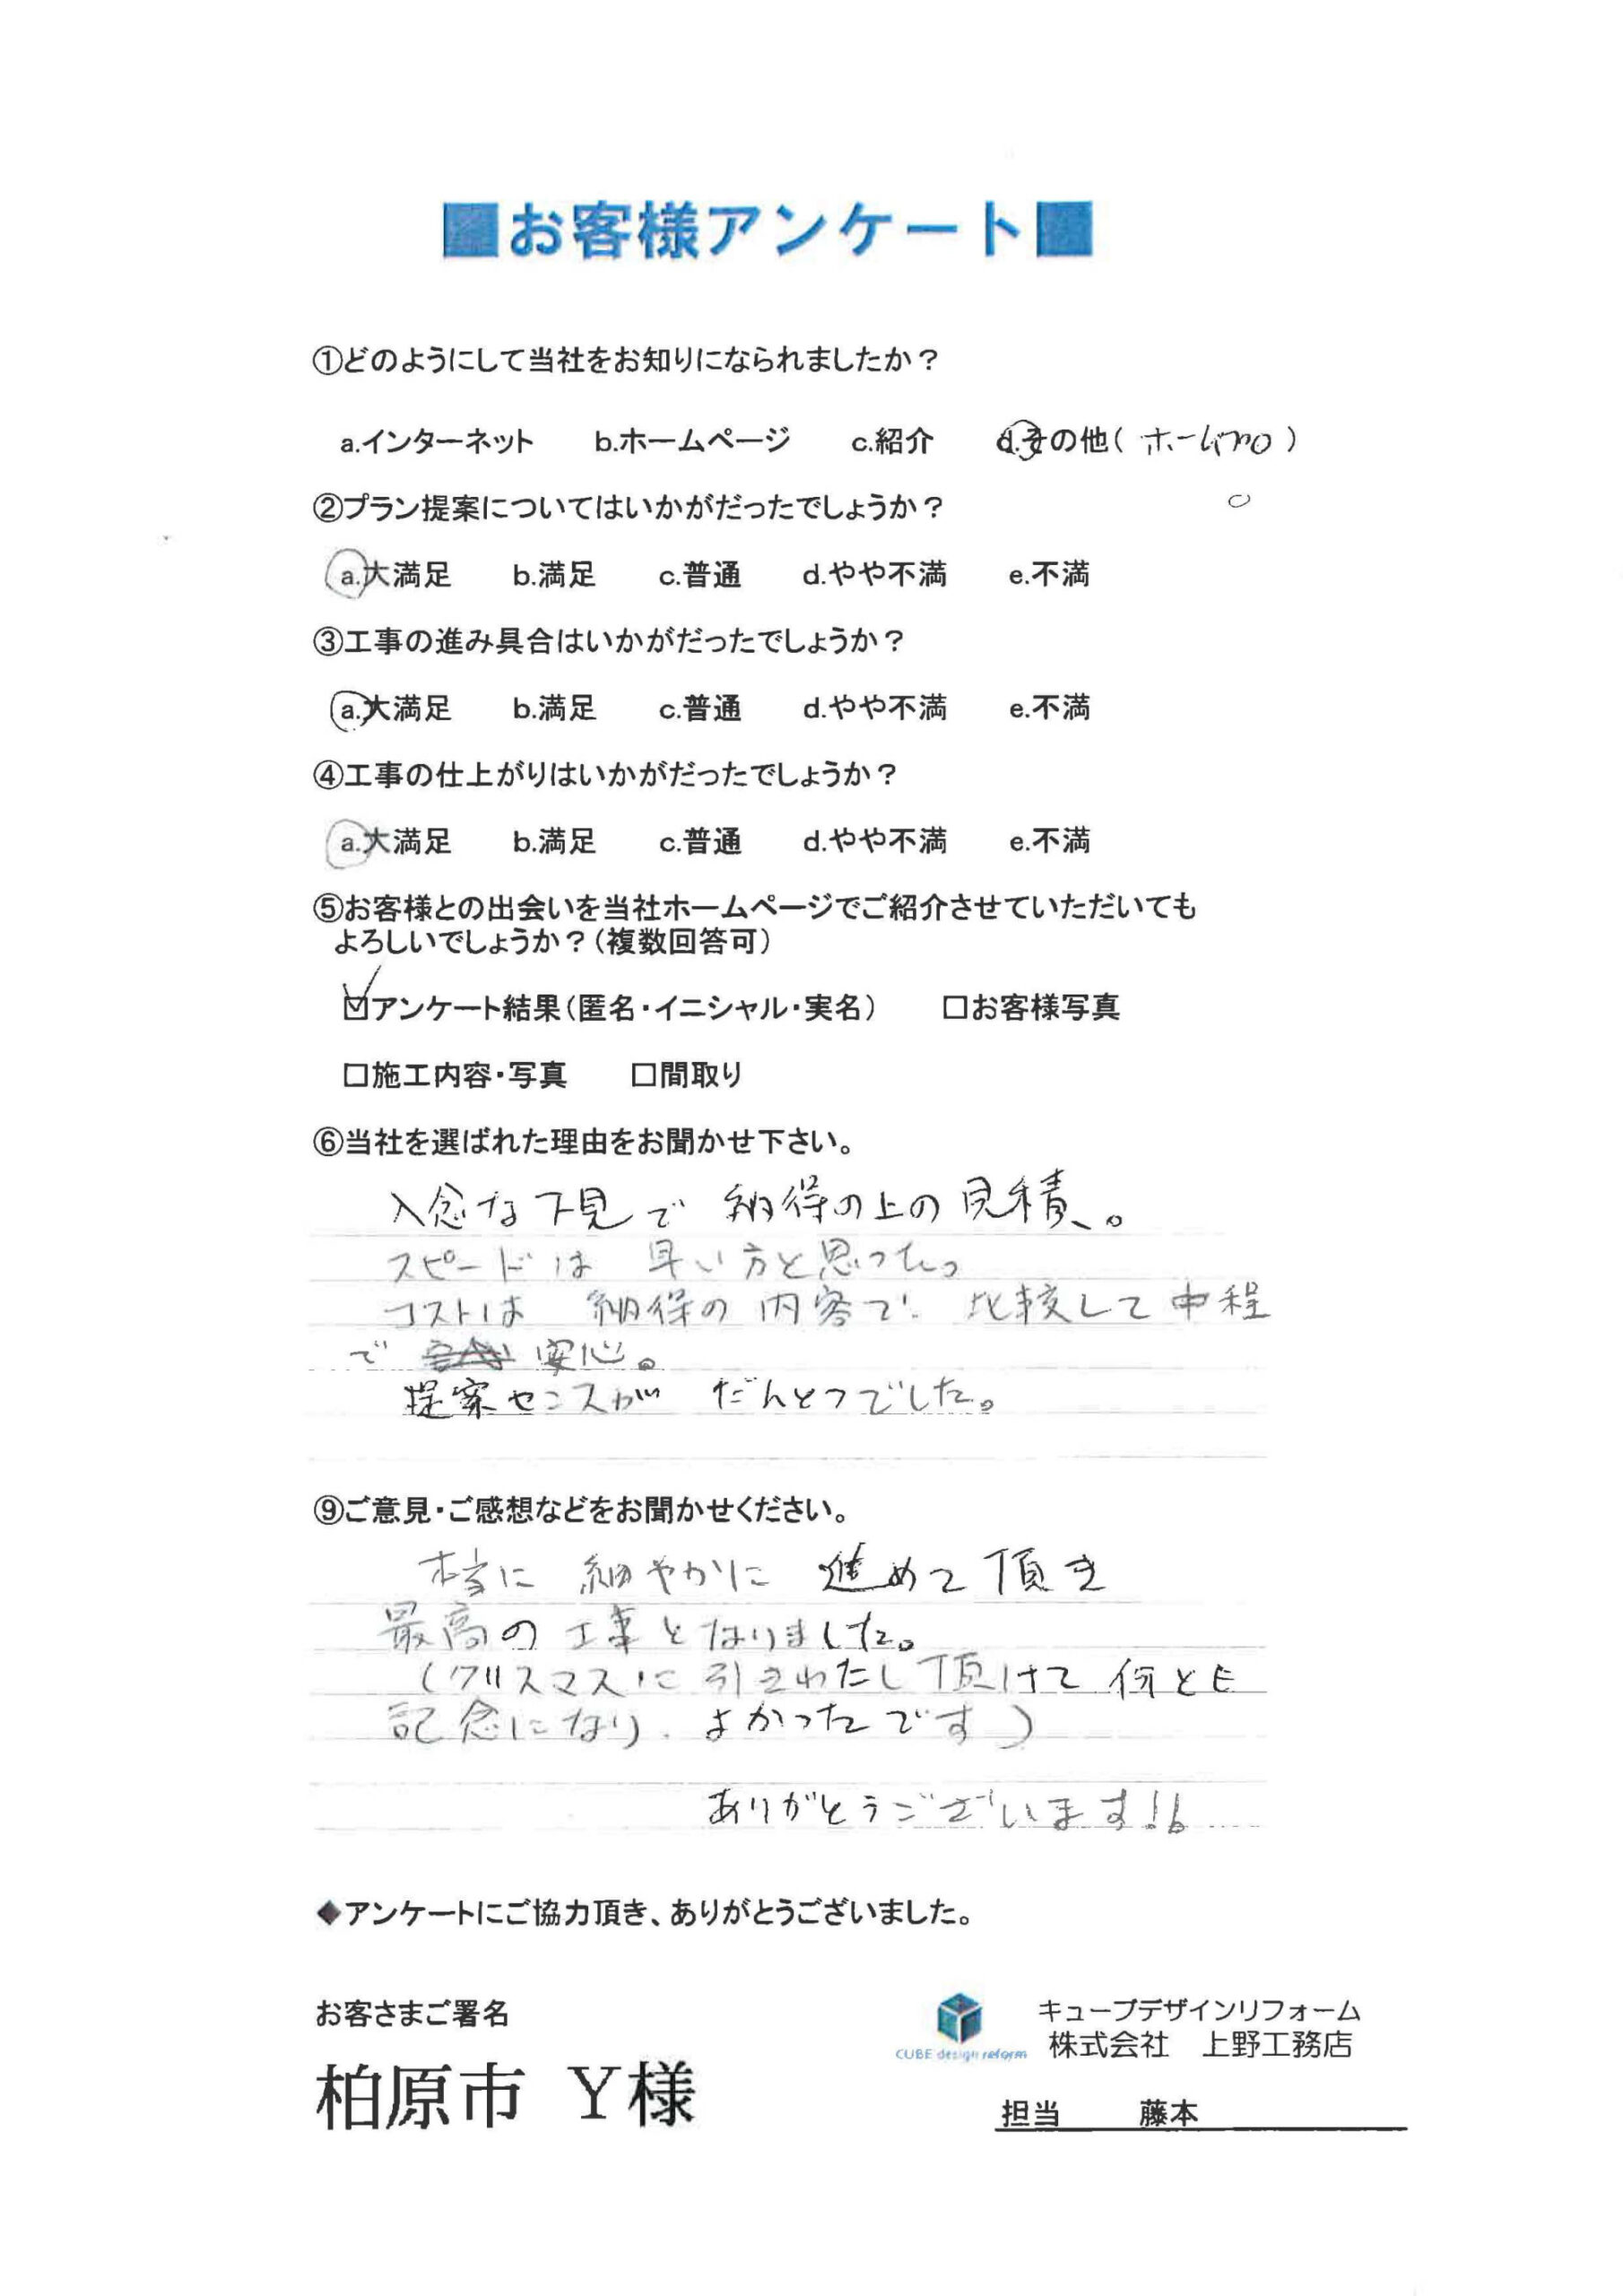 ■お客様アンケート■
①どのようにして当社をお知りになられましたか？
a.インターネット b.ホームページ c.紹介 d.その他( ホームプロ )
②プラン提案についてはいかがだったでしょうか？
a.大満足 b.満足 c.普通 d.やや不満 e.不満
③工事の進み具合はいかがだったでしょうか？
a.大満足 b.満足 c.普通 d.やや不満 e.不満
④工事の仕上がりはいかがだったでしょうか？
a.大満足 b.満足 c.普通 d.やや不満 e.不満
⑤お客様との出会いを当社ホームページでご紹介させていただいても
よろしいでしょうか？(複数回答可)
☑アンケート結果(匿名・イニシャル・実名) □お客様写真
□施工内容・写真 □間取り
⑥当社を選ばれた理由をお聞かせ下さい。
入念な下見で 納得の上の見積、。
スピードは 早い方と思った。
コストは 納得の内容で、比較して中程
で 安心。
提案センスが だんとつでした。
⑨ご意見・ご感想などをお聞かせください。
本当に 細やかに 進めて頂き
最高の工事となりました。
(クリスマスに引きわたし頂けて何とも
記念になり、よかったです)
ありがとうございます!!
◆アンケートにご協力頂き、ありがとうございました。
お客さまご署名
柏原市 Y様
キューブデザインリフォーム
CUBE design reform 株式会社 上野工務店
担当 藤本